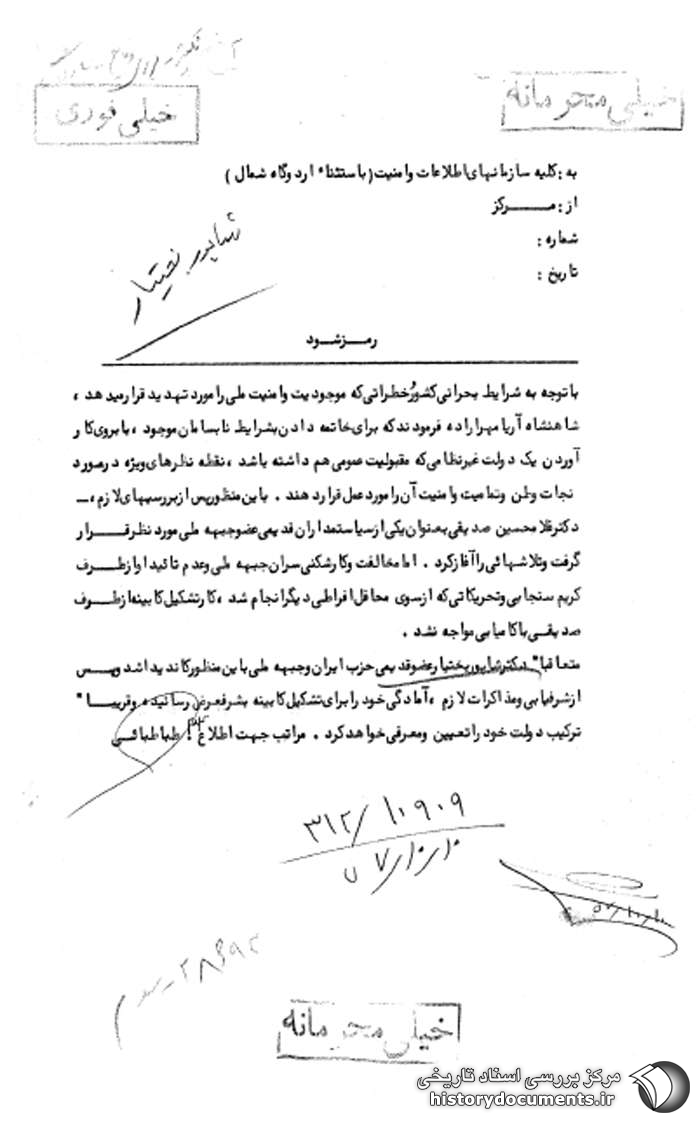 خیلی محرمانه
خیلی فوری
به : کلیه سازمانهای اطلاعات وامنیت ( باستثناء اردوگاه شمال )
از : مرکز
شماره :
تاریخ :
شاپور بختیار
رمزشود
باتوجه به شرایط بحرانی کشور وخطراتی که موجودیت وامنیت ملی رامورد تهدید قرارمیدهد ،
شاهنشاه آریامهراراده فرمودند که برای خاتمه دادن بشرایط نابسامان موجود ، باروی کار
آوردن یک دولت غیرنظامی که مقبولیت عمومی هم داشته باشد ، نقطه نظرهای ویژه درمورد
نجات وطن وتمامیت وامنیت آن رامورد عمل قراردهند . باین منظورپس ازبررسیهای لازم ،
دکترغلامحسین صدیقی بعنوان یکی ازسیاستمداران قدیمی عضوجبهه ملی مورد نظرقرار
گرفت وتلاشهائی راآغازکرد . امامخالفت وکارشکنی سران جبهه ملی وعدم تائید اوازطرف
کریم سنجابی وتحریکاتی که ازسوی محافل افراطی دیگرانجام شد ، کارتشکیل کابینه ازطرف
صدیقی باکامیابی مواجه نشد .
متعاقبا" دکترشاپوربختیارعضوقدیمی حزب ایران وجبهه ملی باین منظورکاندیداشد وپس
ازشرفیابی ومذاکرات لازم ، آمادگی خود رابرای تشکیل کابینه بشرفعرض رسانیده وقریبا"
ترکیب دولت خود راتعیین ومعرفی خواهد کرد . مراتب جهت اطلاع . طباطبائی
۳۱۲/۱۰۹۰۹
۵۷/۱۰/۱۰
۵۷/۱۰/۱۰
خیلی محرمانه
مرکز بررسی اسناد تاریخی
historydocuments.ir